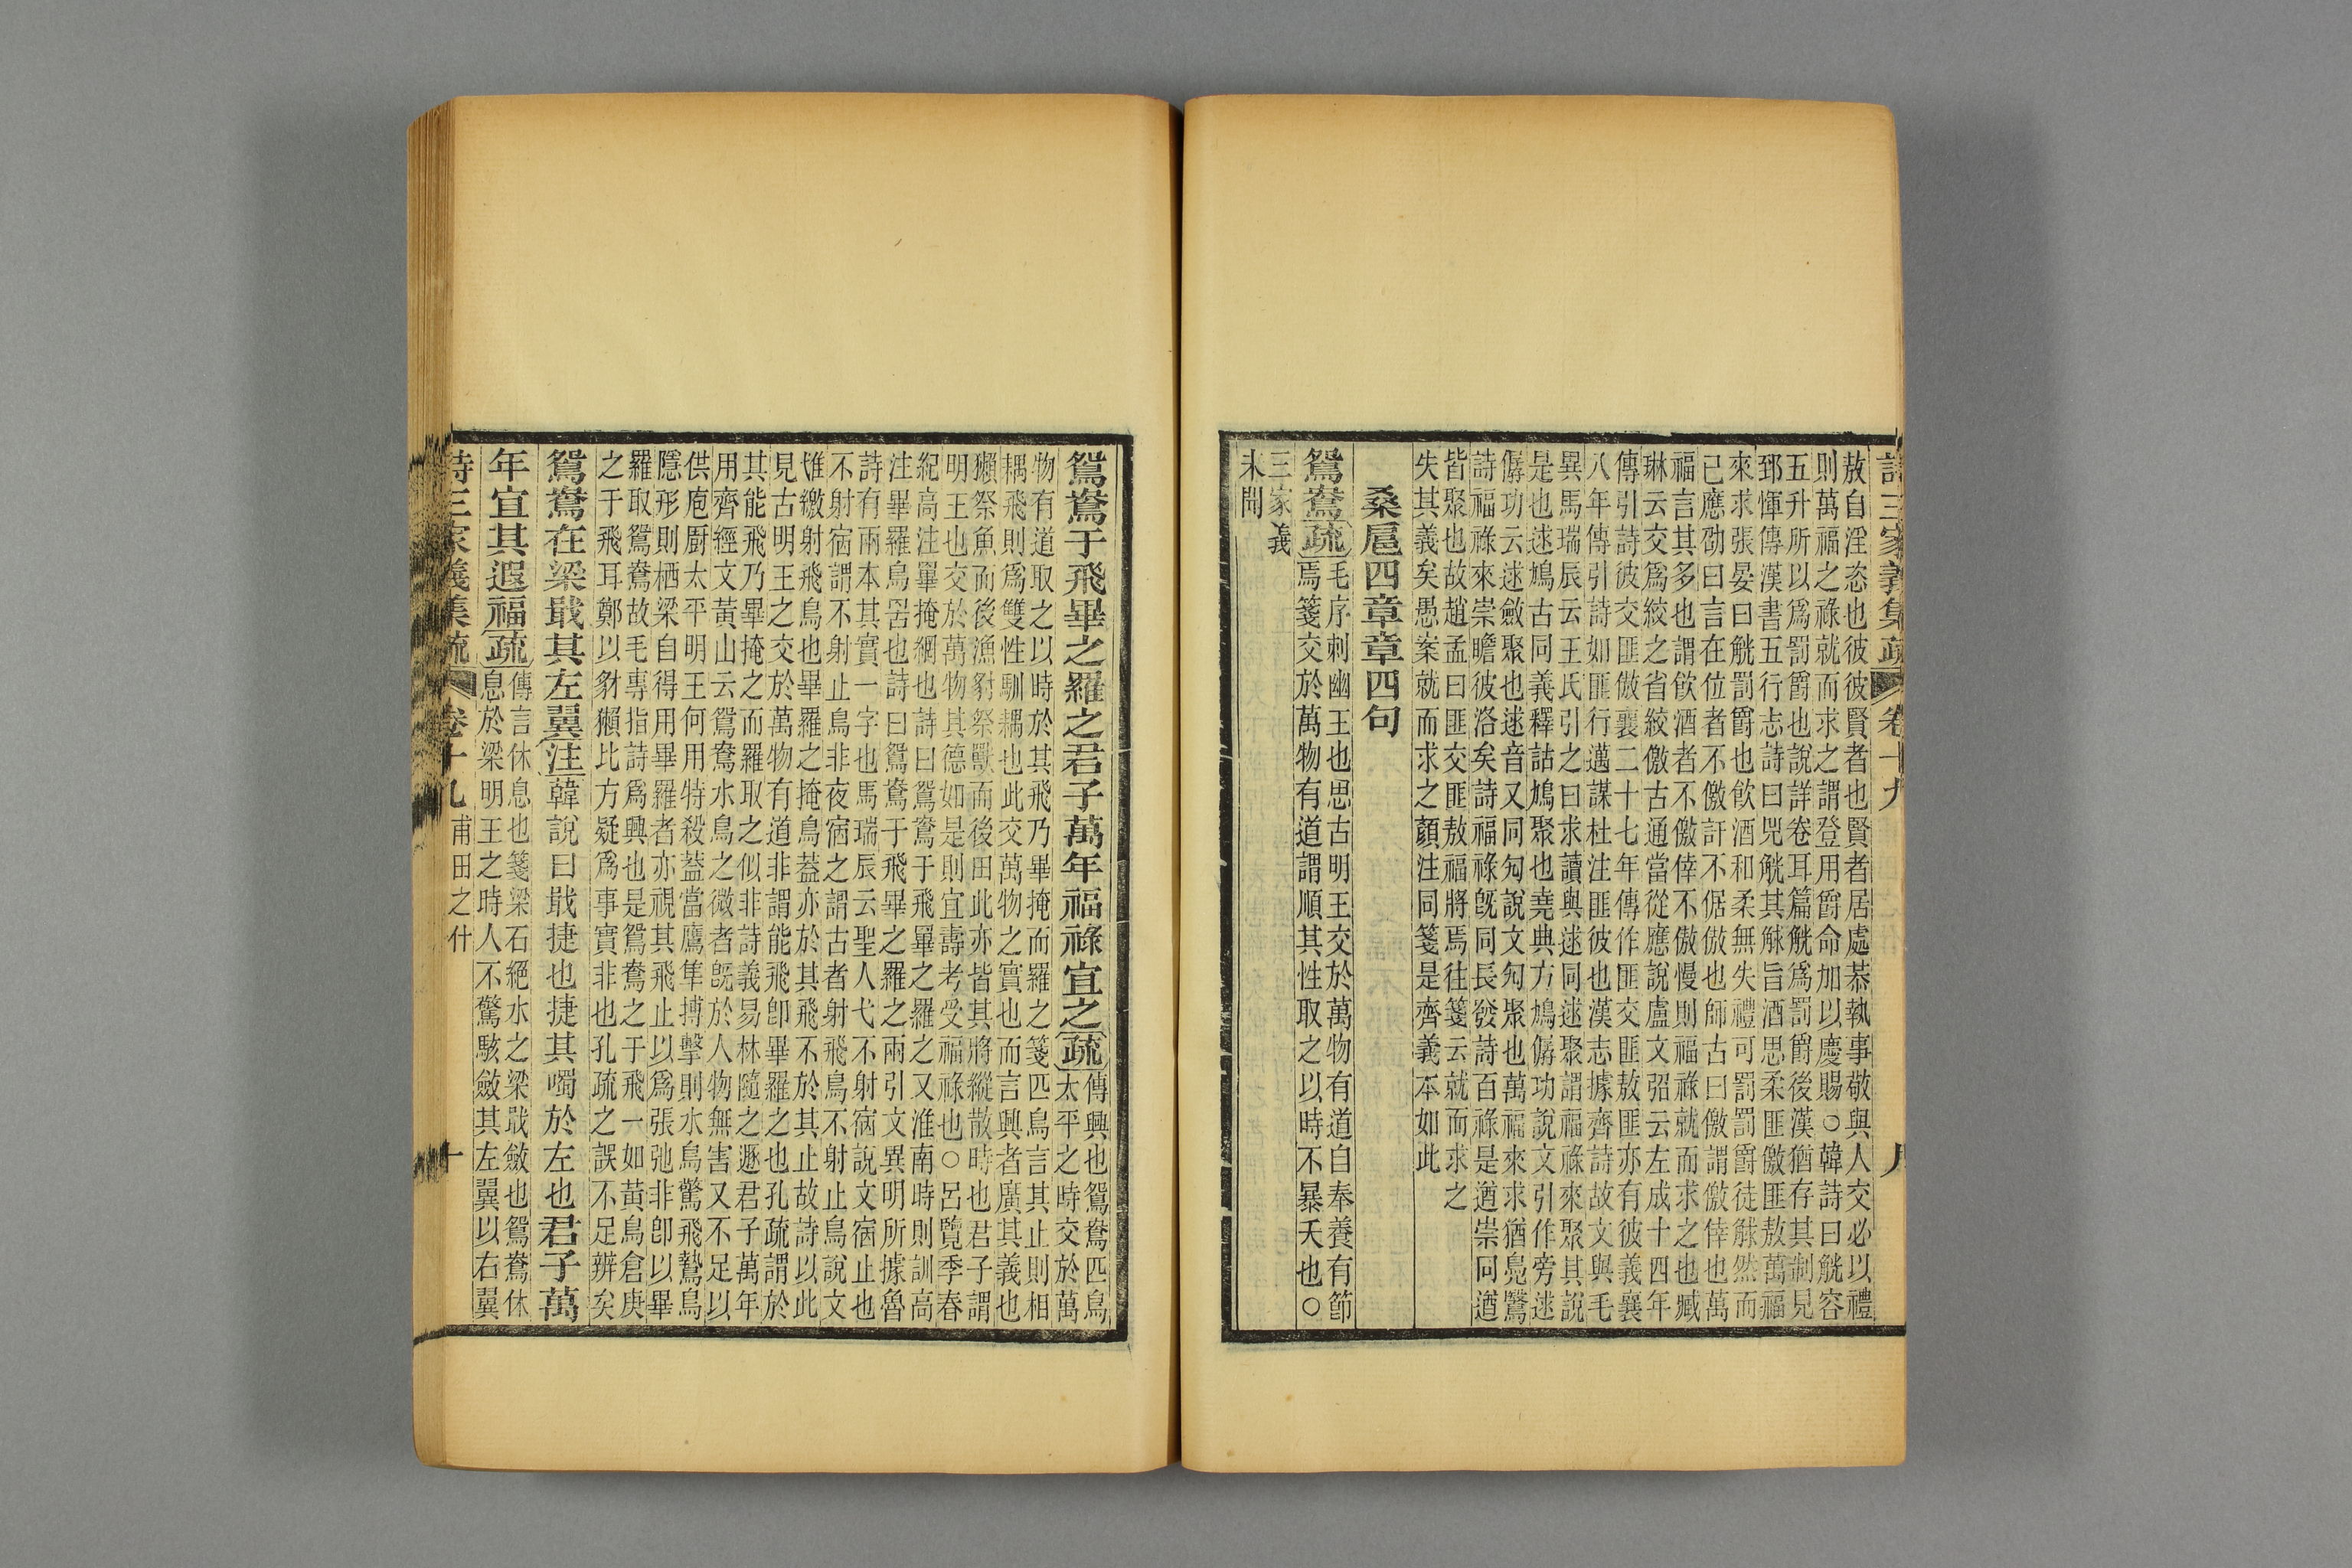 詩三家義集疏 卷十九
敖自淫恣也彼彼賢者也賢者居處恭執事敬與人交必以禮
則萬福之祿就而求之謂登用爵命加以慶賜○韓詩曰觥容
五升所以爲罰爵也說詳卷耳篇觥爲罰爵後漢猶存其制見
郅惲傳漢書五行志詩曰兕觥其觩旨酒思柔匪儌匪敖萬福
來求張晏曰觥罰爵也飮酒和柔無失禮可罰罰爵徒觩然而
已應劭曰言在位者不儌訐不倨傲也師古曰儌謂儌倖也萬
福言其多也謂飮酒者不儌倖不傲慢則福祿就而求之也臧
琳云交爲絞之省絞儌古通當從應說盧文弨云左成十四年
傳引詩彼交匪傲襄二十七年傳作匪交匪敖匪亦有彼義襄
八年傳引詩如匪行邁謀杜注匪彼也漢志據齊詩故文與毛
異馬瑞辰云王氏引之曰求讀與逑同逑聚謂福祿來聚其說
是也逑鳩古同義釋詁鳩聚也堯典方鳩僝功說文引作旁逑
僝功云逑斂聚也逑音又同勼說文勼聚也萬福來求猶鳧鷖
詩福祿來崇瞻彼洛矣詩福祿旣同長發詩百祿是遒崇同遒
皆聚也故趙孟曰匪交匪敖福將焉往箋云就而求之
失其義矣愚案就而求之顏注同箋是齊義本如此
桑扈四章章四句
鴛鴦疏毛序刺幽王也思古明王交於萬物有道自奉養有節
焉箋交於萬物有道謂順其性取之以時不暴夭也○
三家義
未聞
鴛鴦于飛畢之羅之君子萬年福祿宜之疏傳興也鴛鴦匹鳥
太平之時交於萬
物有道取之以時於其飛乃畢掩而羅之箋匹鳥言其止則相
耦飛則爲雙性馴耦也此交萬物之實也而言興者廣其義也
獺祭魚而後漁豺祭獸而後田此亦皆其將縱散時也君子謂
明王也交於萬物其德如是則宜壽考受福祿也○呂覽季春
紀高注畢掩網也詩曰鴛鴦于飛畢之羅之又淮南時則訓高
注畢羅鳥罟也詩曰鴛鴦于飛畢之羅之兩引文異明所據魯
詩有兩本其實一字也馬瑞辰云聖人弋不射宿說文宿止也
不射宿謂不射止鳥非夜宿之謂古者射飛鳥不射止鳥說文
惟繳射飛鳥也畢羅之掩鳥葢亦於其飛不於其止故詩以此
見古明王之交於萬物有道非謂能飛卽畢羅之也孔疏謂於
其能飛乃畢掩之而羅取之似非詩義易林隨之遯君子萬年
用齊經文黃山云鴛鴦水鳥之微者旣於人物無害又不足以
供庖厨太平明王何用特殺葢當鷹隼搏擊則水鳥驚飛鷙鳥
隱形則栖梁自得用畢羅者亦視其飛止以爲張弛非卽以畢
羅取鴛鴦故毛專指詩爲興也是鴛鴦之于飛一如黃鳥倉庚
之于飛耳鄭以豺獺比方疑爲事實非也孔疏之誤不足辨矣
鴛鴦在梁戢其左翼注韓說曰戢捷也捷其噣於左也君子萬
年宜其遐福疏傳言休息也箋梁石絕水之梁戢斂也鴛鴦休
息於梁明王之時人不驚駭斂其左翼以右翼
詩三家義集疏 卷十九 甫田之什 十